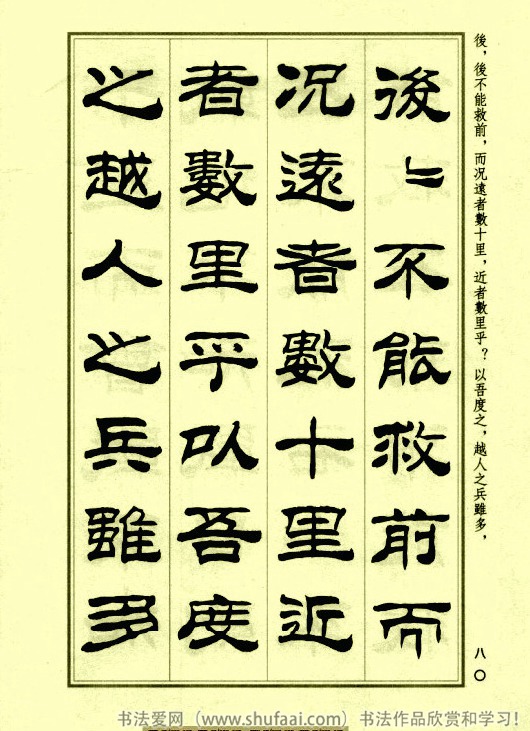 後，後不能救前，而況遠者數十里，近者數里乎？以吾度之，越人之兵雖多，
後〻不能救前而
况遠者數十里近
者數里乎以吾度
之越人之兵雖多
八〇
书法爱网（www.shufaai.com）书法作品欣赏和学习！